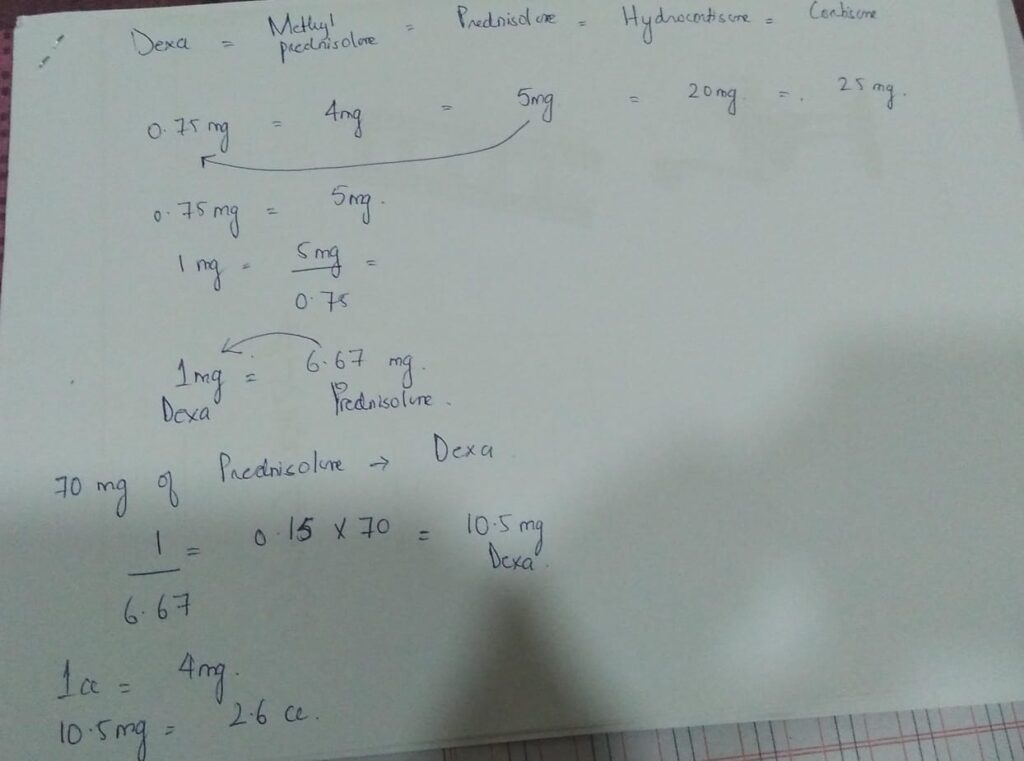 Dexa = Methyl prednisolone = Prednisolone = Hydrocortisone = Cortisone
0.75 mg = 4mg = 5mg = 20mg = 25 mg.
0.75 mg = 5mg.
1 mg = 5mg / 0.75 =
1mg = 6.67 mg.
Dexa Prednisolone.
70 mg of Prednisolone → Dexa
1 / 6.67 = 0.15 x 70 = 10.5 mg
Dexa.
1cc = 4mg.
10.5mg = 2.6 cc.